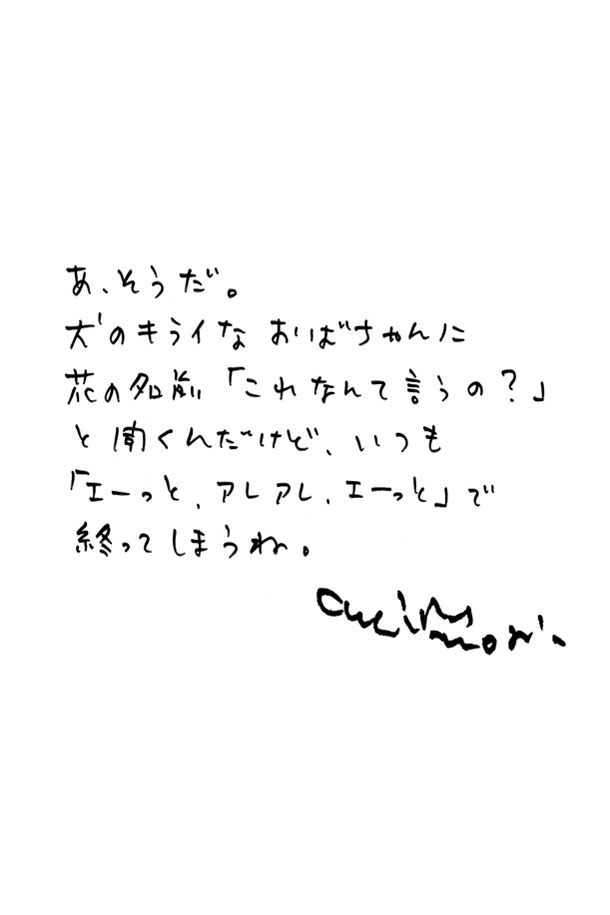 あ、そうだ。
犬のキライな おばちゃんに
花の名前「これなんて言うの？」
と聞くんだけど、いつも
「エーっと、アレアレ、エーっと」で
終ってしまうね。